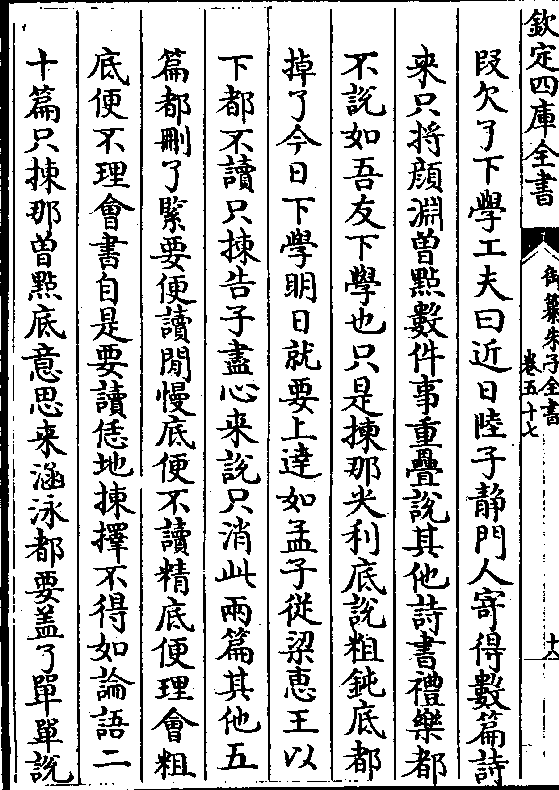 欽定四庫全書
御纂朱子全書
卷五十七
十六
段欠了下學工夫曰近日陸子靜門人寄得數篇詩
来只將顔淵曽㸃數件事重疊說其他詩書禮樂都
不說如吾友下學也只是揀那尖利底說粗鈍底都
掉了今日下學明日就要上達如孟子從梁惠王以
下都不讀只揀告子盡心来說只消此兩篇其他五
篇都刪了緊要便讀閒慢底便不讀精底便理會粗
底便不理會書自是要讀恁地揀擇不得如論語二
十篇只揀那曽㸃底意思来涵泳都要盖了單單說